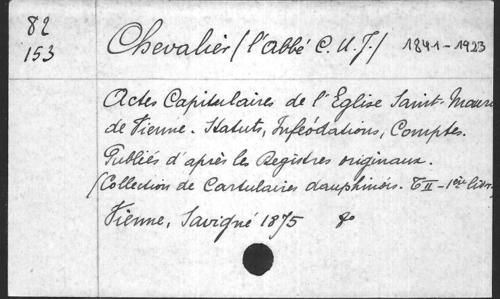 82
153
Chevalier (l'abbé C. U. J.) 1841-1923
Actes Capitulaires de l'Eglise Saint-Maurice
de Vienne. Statuts, Inféodations, Comptes.
Publiés d'après les Registres originaux.
(Collection de Cartulaires dauphinois. T II - 1ère livr.
Vienne, Savigné 1875 8º